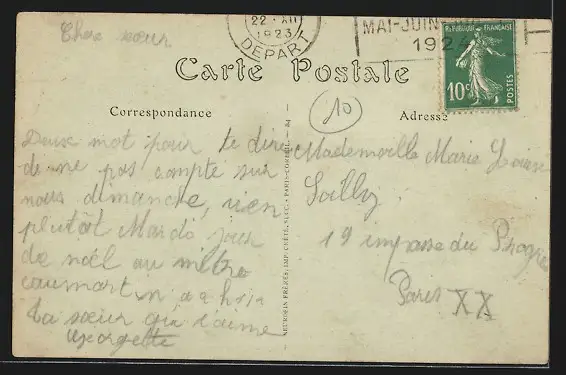 22 · XII
1923
DEPART
MAI-JUIN
192
REPUBLIQUE FRANÇAISE
10c
POSTES
Carte Postale
10
Correspondance
Adresse
Cher sœur
Deux mot pour te dire
de ne pas compte sur
nous dimanche, vien
plutôt Mardi jour
de noël au métro
caumartin a
ta sœur qui t'aime
Georgette
Mademoiselle Marie Louise
19 impasse du Progrès
Paris XX
NEURDEIN FRÈRES, IMP. CRÉTÉ, SUCC. - PARIS-CORBEIL. - 84